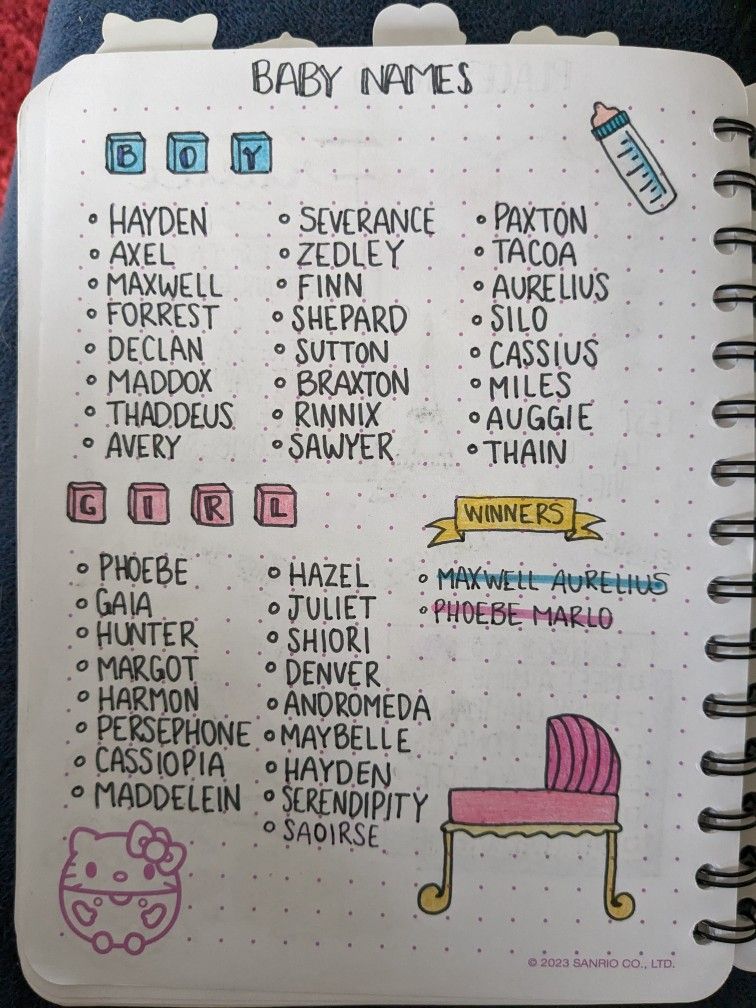 BABY NAMES
BOY
• HAYDEN
• AXEL
• MAXWELL
• FORREST
• DECLAN
• MADDOX
• THADDEUS
• AVERY
• SEVERANCE
• ZEDLEY
• FINN
• SHEPARD
• SUTTON
• BRAXTON
• RINNIX
• SAWYER
• PAXTON
• TACOA
• AURELIUS
• SILO
• CASSIUS
• MILES
• AUGGIE
• THAIN
GIRL
• PHOEBE
• GAIA
• HUNTER
• MARGOT
• HARMON
• PERSEPHONE
• CASSIOPIA
• MADDELEIN
• HAZEL
• JULIET
• SHIORI
• DENVER
• ANDROMEDA
• MAYBELLE
• HAYDEN
• SERENDIPITY
• SAOIRSE
WINNERS
• MAXWELL AURELIUS
• PHOEBE MARLO
© 2023 SANRIO CO., LTD.